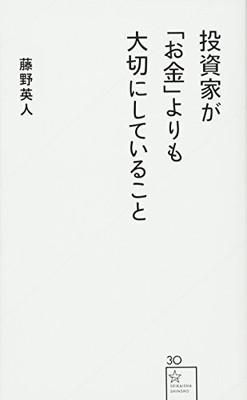 投資家が
「お金」よりも
大切にしていること
藤野英人
30
SEIKAISHA
SHINSHO